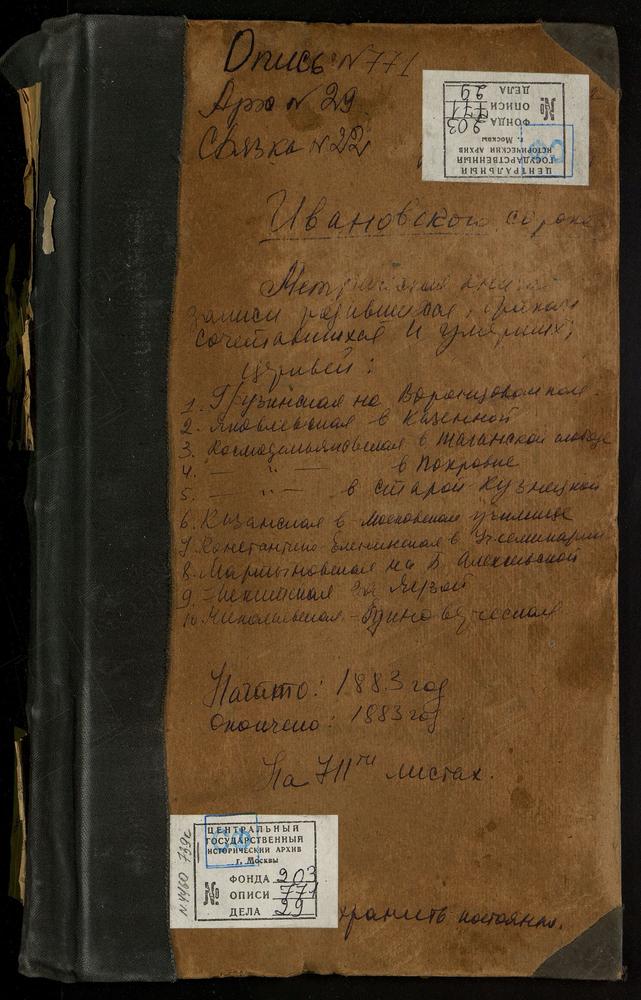 Опись №771
Арх № 29
Связка № 22
ЦЕНТРАЛЬНЫЙ
ГОСУДАРСТВЕННЫЙ
ИСТОРИЧЕСКИЙ АРХИВ
г. Москвы
ФОНДА 203
№ ОПИСИ 771
ДЕЛА 29
Ивановского сорока
Метрическая книга
записи родившихся, браком
сочетавшихся и умерших,
церквей:
1. Грузинская на Воронцовом поле
2. Яковлевская в Казенной
3. Космодемьяновская в Таганской слободе
4. — " — в Покровке
5. — " — в Старой Кузнецкой
6. Казанская в Московском училище
7. Константино-Еленинская в Уч. семинарии
8. Мартыновская на Б. Алексеевской
9. за Яузой
10. Никольская-Единоверческая
Начато: 1883 год
Окончено: 1883 год
На 711ти листах.
ЦЕНТРАЛЬНЫЙ
ГОСУДАРСТВЕННЫЙ
ИСТОРИЧЕСКИЙ АРХИВ
г. Москвы
ФОНДА 203
№ ОПИСИ 771
ДЕЛА 29
хранить постоянно.